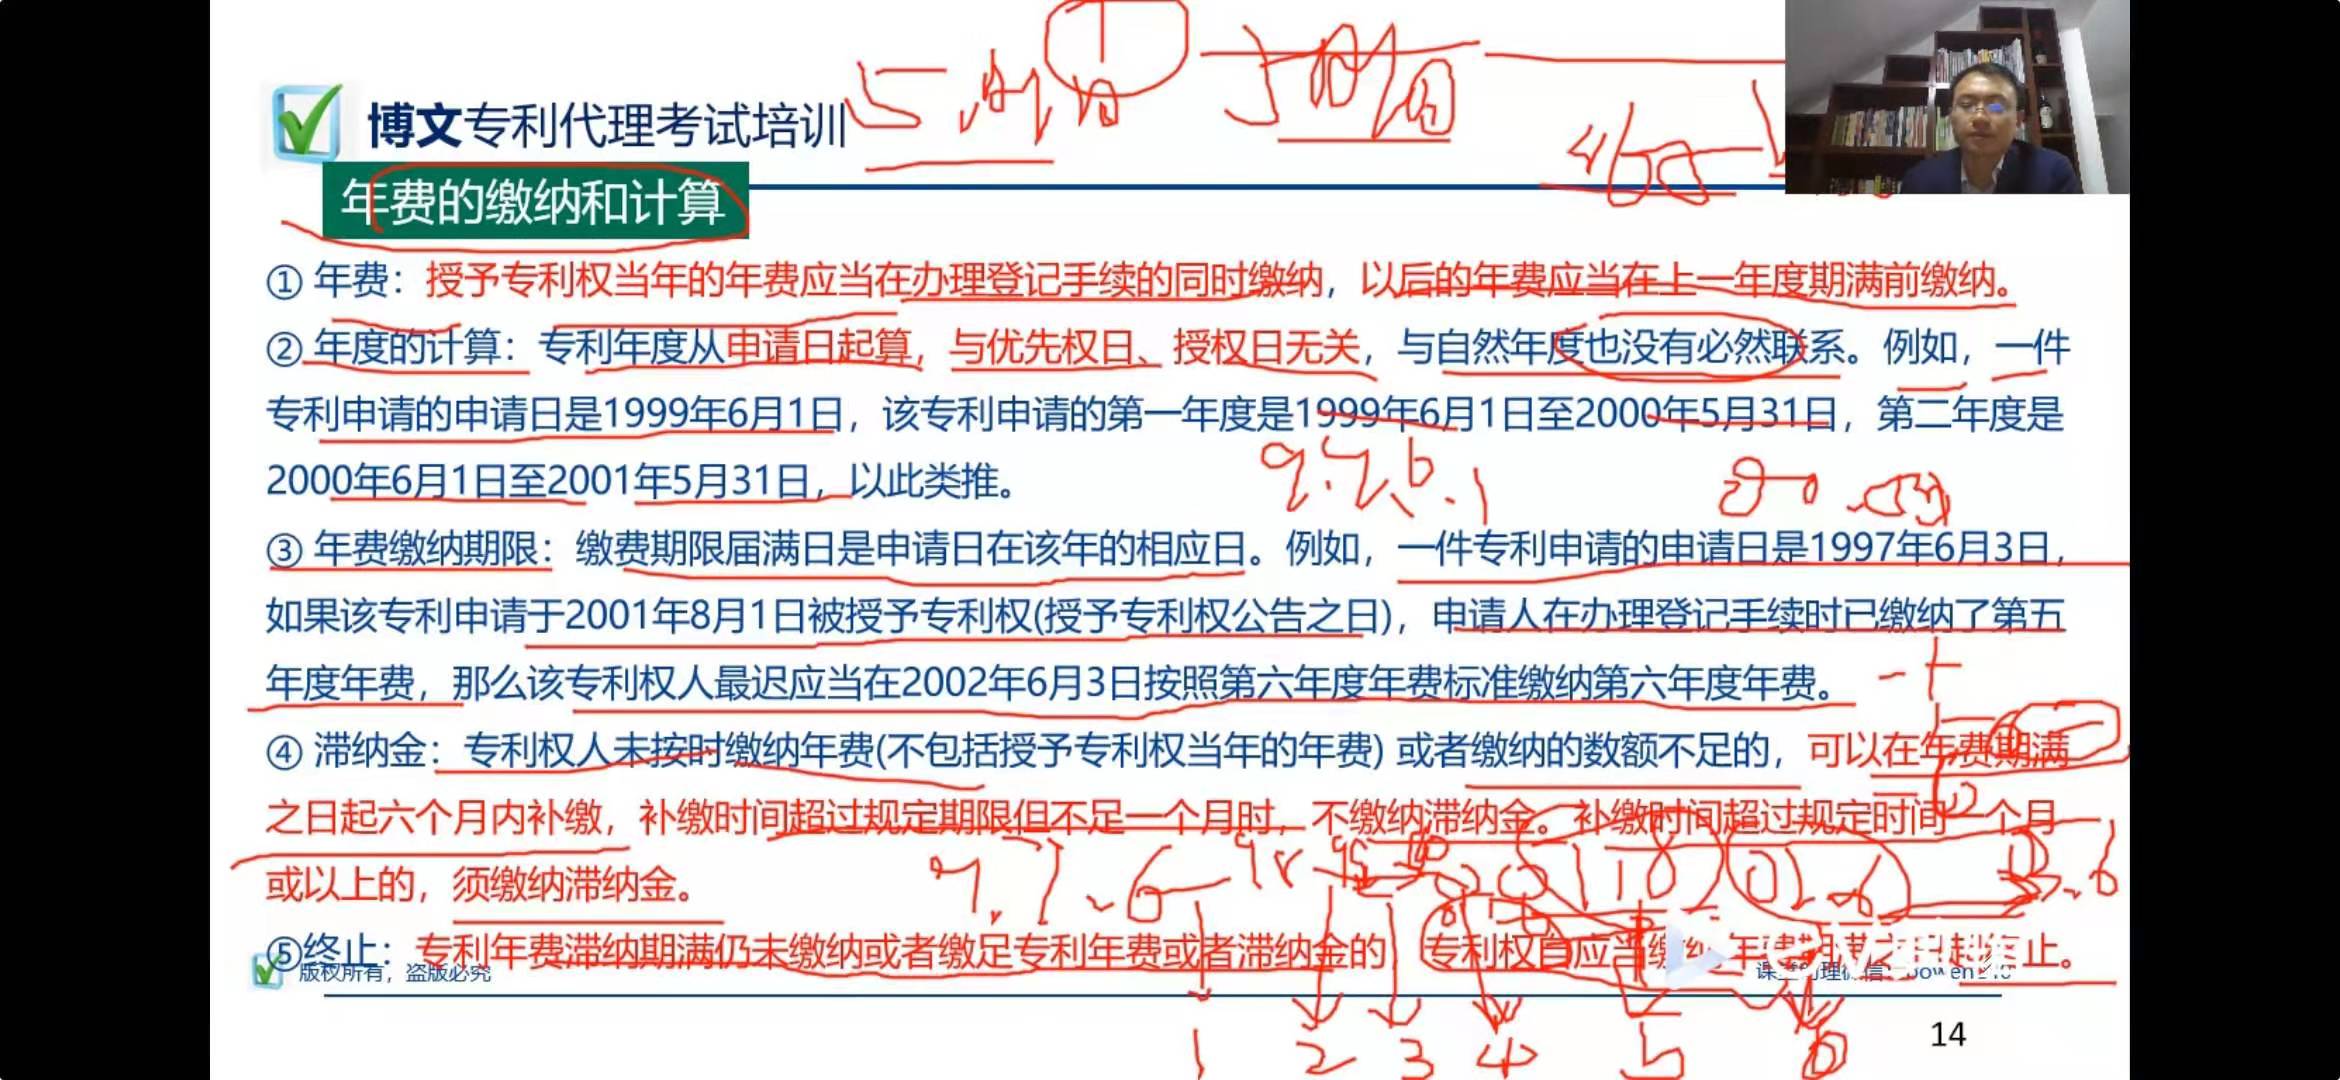 博文专利代理考试培训
年费的缴纳和计算
① 年费：授予专利权当年的年费应当在办理登记手续的同时缴纳，以后的年费应当在上一年度期满前缴纳。
② 年度的计算：专利年度从申请日起算，与优先权日、授权日无关，与自然年度也没有必然联系。例如，一件
专利申请的申请日是1999年6月1日，该专利申请的第一年度是1999年6月1日至2000年5月31日，第二年度是
2000年6月1日至2001年5月31日，以此类推。
③ 年费缴纳期限：缴费期限届满日是申请日在该年的相应日。例如，一件专利申请的申请日是1997年6月3日，
如果该专利申请于2001年8月1日被授予专利权(授予专利权公告之日)，申请人在办理登记手续时已缴纳了第五
年度年费，那么该专利权人最迟应当在2002年6月3日按照第六年度年费标准缴纳第六年度年费。
④ 滞纳金：专利权人未按时缴纳年费(不包括授予专利权当年的年费) 或者缴纳的数额不足的，可以在年费期满
之日起六个月内补缴，补缴时间超过规定期限但不足一个月时，不缴纳滞纳金。补缴时间超过规定时间一个月
或以上的，须缴纳滞纳金。
⑤终止：专利年费滞纳期满仍未缴纳或者缴足专利年费或者滞纳金的 专利权自应当缴纳年费期满之 起 止。
版权所有，盗版必究
14
1 2 3 4 5 6